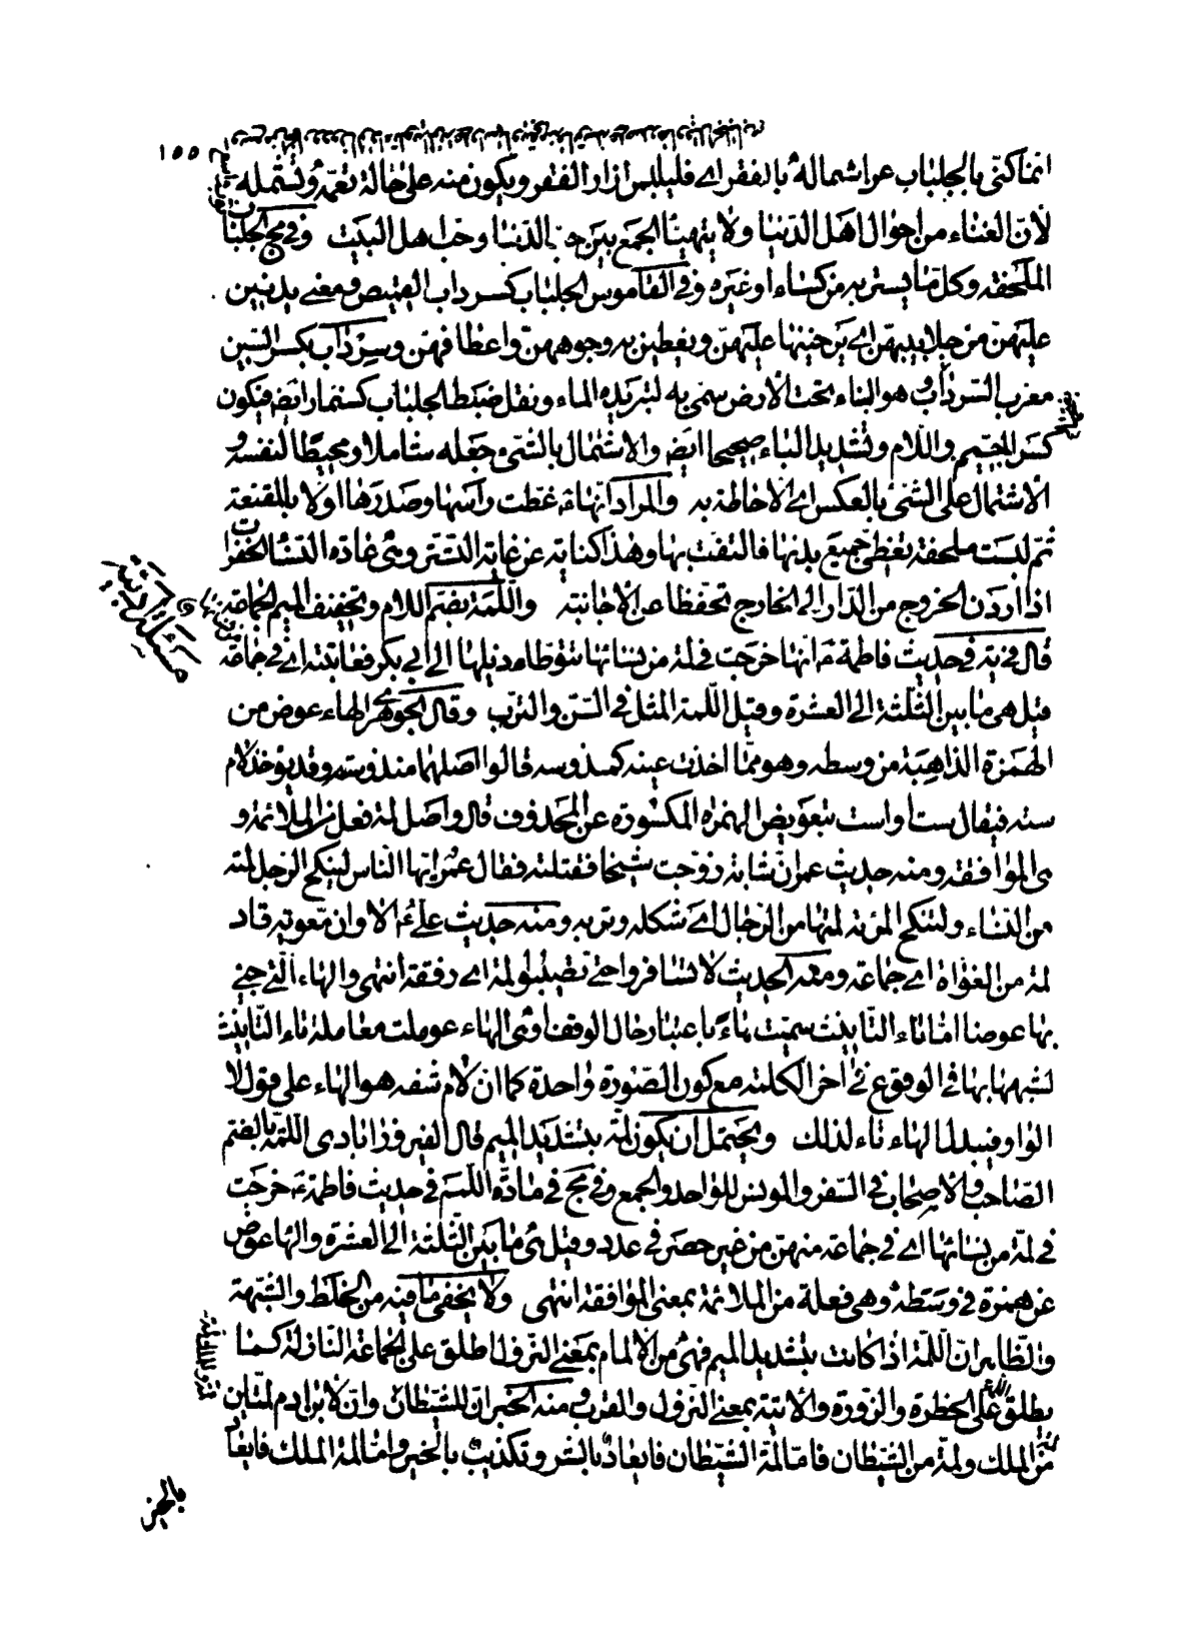 ١٥٥
انما كنى بالجلباب عن اشماله بالفقر اى فليلبس ازار الفقر ويكون منه على حالة تعمه وتشتمله
لان الغناء من احوال اهل الدنيا ولا يتهيئا الجمع بين حب الدنيا وحب اهل البيت وفى مج الجلباب
الملحفة وكل ما يستر به من كساء او غيره وفى القاموس الجلباب كسرداب القميص ومعنى يدنين
عليهن من جلابيبهن اى يرخينها عليهن ويغطين به وجوههن واعطافهن وسرداب بكسر السين
معرب السرداب وهو البناء تحت الارض سمى به لتبريده الماء ونقل ضبط الجلباب كسنمار ايض فيكون
كسر الجيم واللام وتشديد الباء صحيحا ايض والاشتمال بالشئ جعله شاملا ومحيطا لنفسه و
الاشتمال على الشئ بالعكس اى الاحاطة به والمراد انها ع غطت راسها وصدرها اولا بالمقنعة
ثم لبست ملحفة تغطى جميع بدنها فالتفت بها وهذا كناية عن غاية التستر وهى عادة النساء الخفرات
اذا اردن الخروج من الدار الى الخارج تحفظا عن الاجانبة واللمة بضم اللام وتخفيف الميم الجماعة
قال فى يه فى حديث فاطمة ع انها خرجت فى لمة من نسائها تتوطا ه ذيلها الى ابى بكر فعاتبته اى فى جماعة
قيل هى ما بين الثلثة الى العشرة وقيل اللمة المثل فى السن والترب وقال الجوهرى الهاء عوض من
الهمزة الذاهبة من وسطه وهو مما اخذت عينه كمذ وسه قالوا اصلهما منذ وسته وقد يؤخذ لام
سته فيقال ست او است بتعويض الهمزة المكسورة عن المحذوف قال واصل لمة فعل من الملائمة و
هى الموافقة ومنه حديث عمر ان شابة زوجت شيخا فقتلته فقال عمر ايها الناس لينكح الرجل لمته
من النساء ولتنكح المرئة لمتها من الرجال اى شكله وتربه ومنه حديث على ع الا وان معوية قاد
لمة من الغواة اى جماعة ومنه الحديث لا تسافروا حتى تصيبوا لمة اى رفقة انتهى والهاء التى جئ
بها عوضا اما تاء التانيث سميت هاء باعتبار حال الوقف او هى الهاء عوملت معاملة تاء التانيث
لشبهها بها فى الوقوع فى اخر الكلمة مع كون الصورة واحدة كما ان لام شفه هو الهاء على قول لا
الواو فيبدل الهاء تاء لذلك ويحتمل ان يكون لمة بتشديد الميم قال الفيروزابادى اللمة بالضم
الصاحب والاصحاب فى السفر والمونس للواحد والجمع وفى مج فى مادة اللمم فى حديث فاطمة ع خرجت
فى لمة من نسائها اى فى جماعة منهن من غير حصر فى عدد وقيل هى ما بين الثلثة الى العشرة والها عوض
عن همزة فى وسطه وهى فعلة من الملائمة بمعنى الموافقة انتهى ولا يخفى ما فيه من الخلط والشبهة
والظاهر ان اللمة اذا كانت بتشديد الميم فهى من الالمام بمعنى النزول اطلق على الجماعة النازلة كما
يطلق على الخطرة والزورة والاتية بمعنى النزول والقرب منه الخبر ان للشيطان وان لابن ادم لمتان
لمة من الملك ولمة من الشيطان فاما لمة الشيطان فايعاد بالشر وتكذيب بالخير واما لمة الملك فايعاد
بالخير